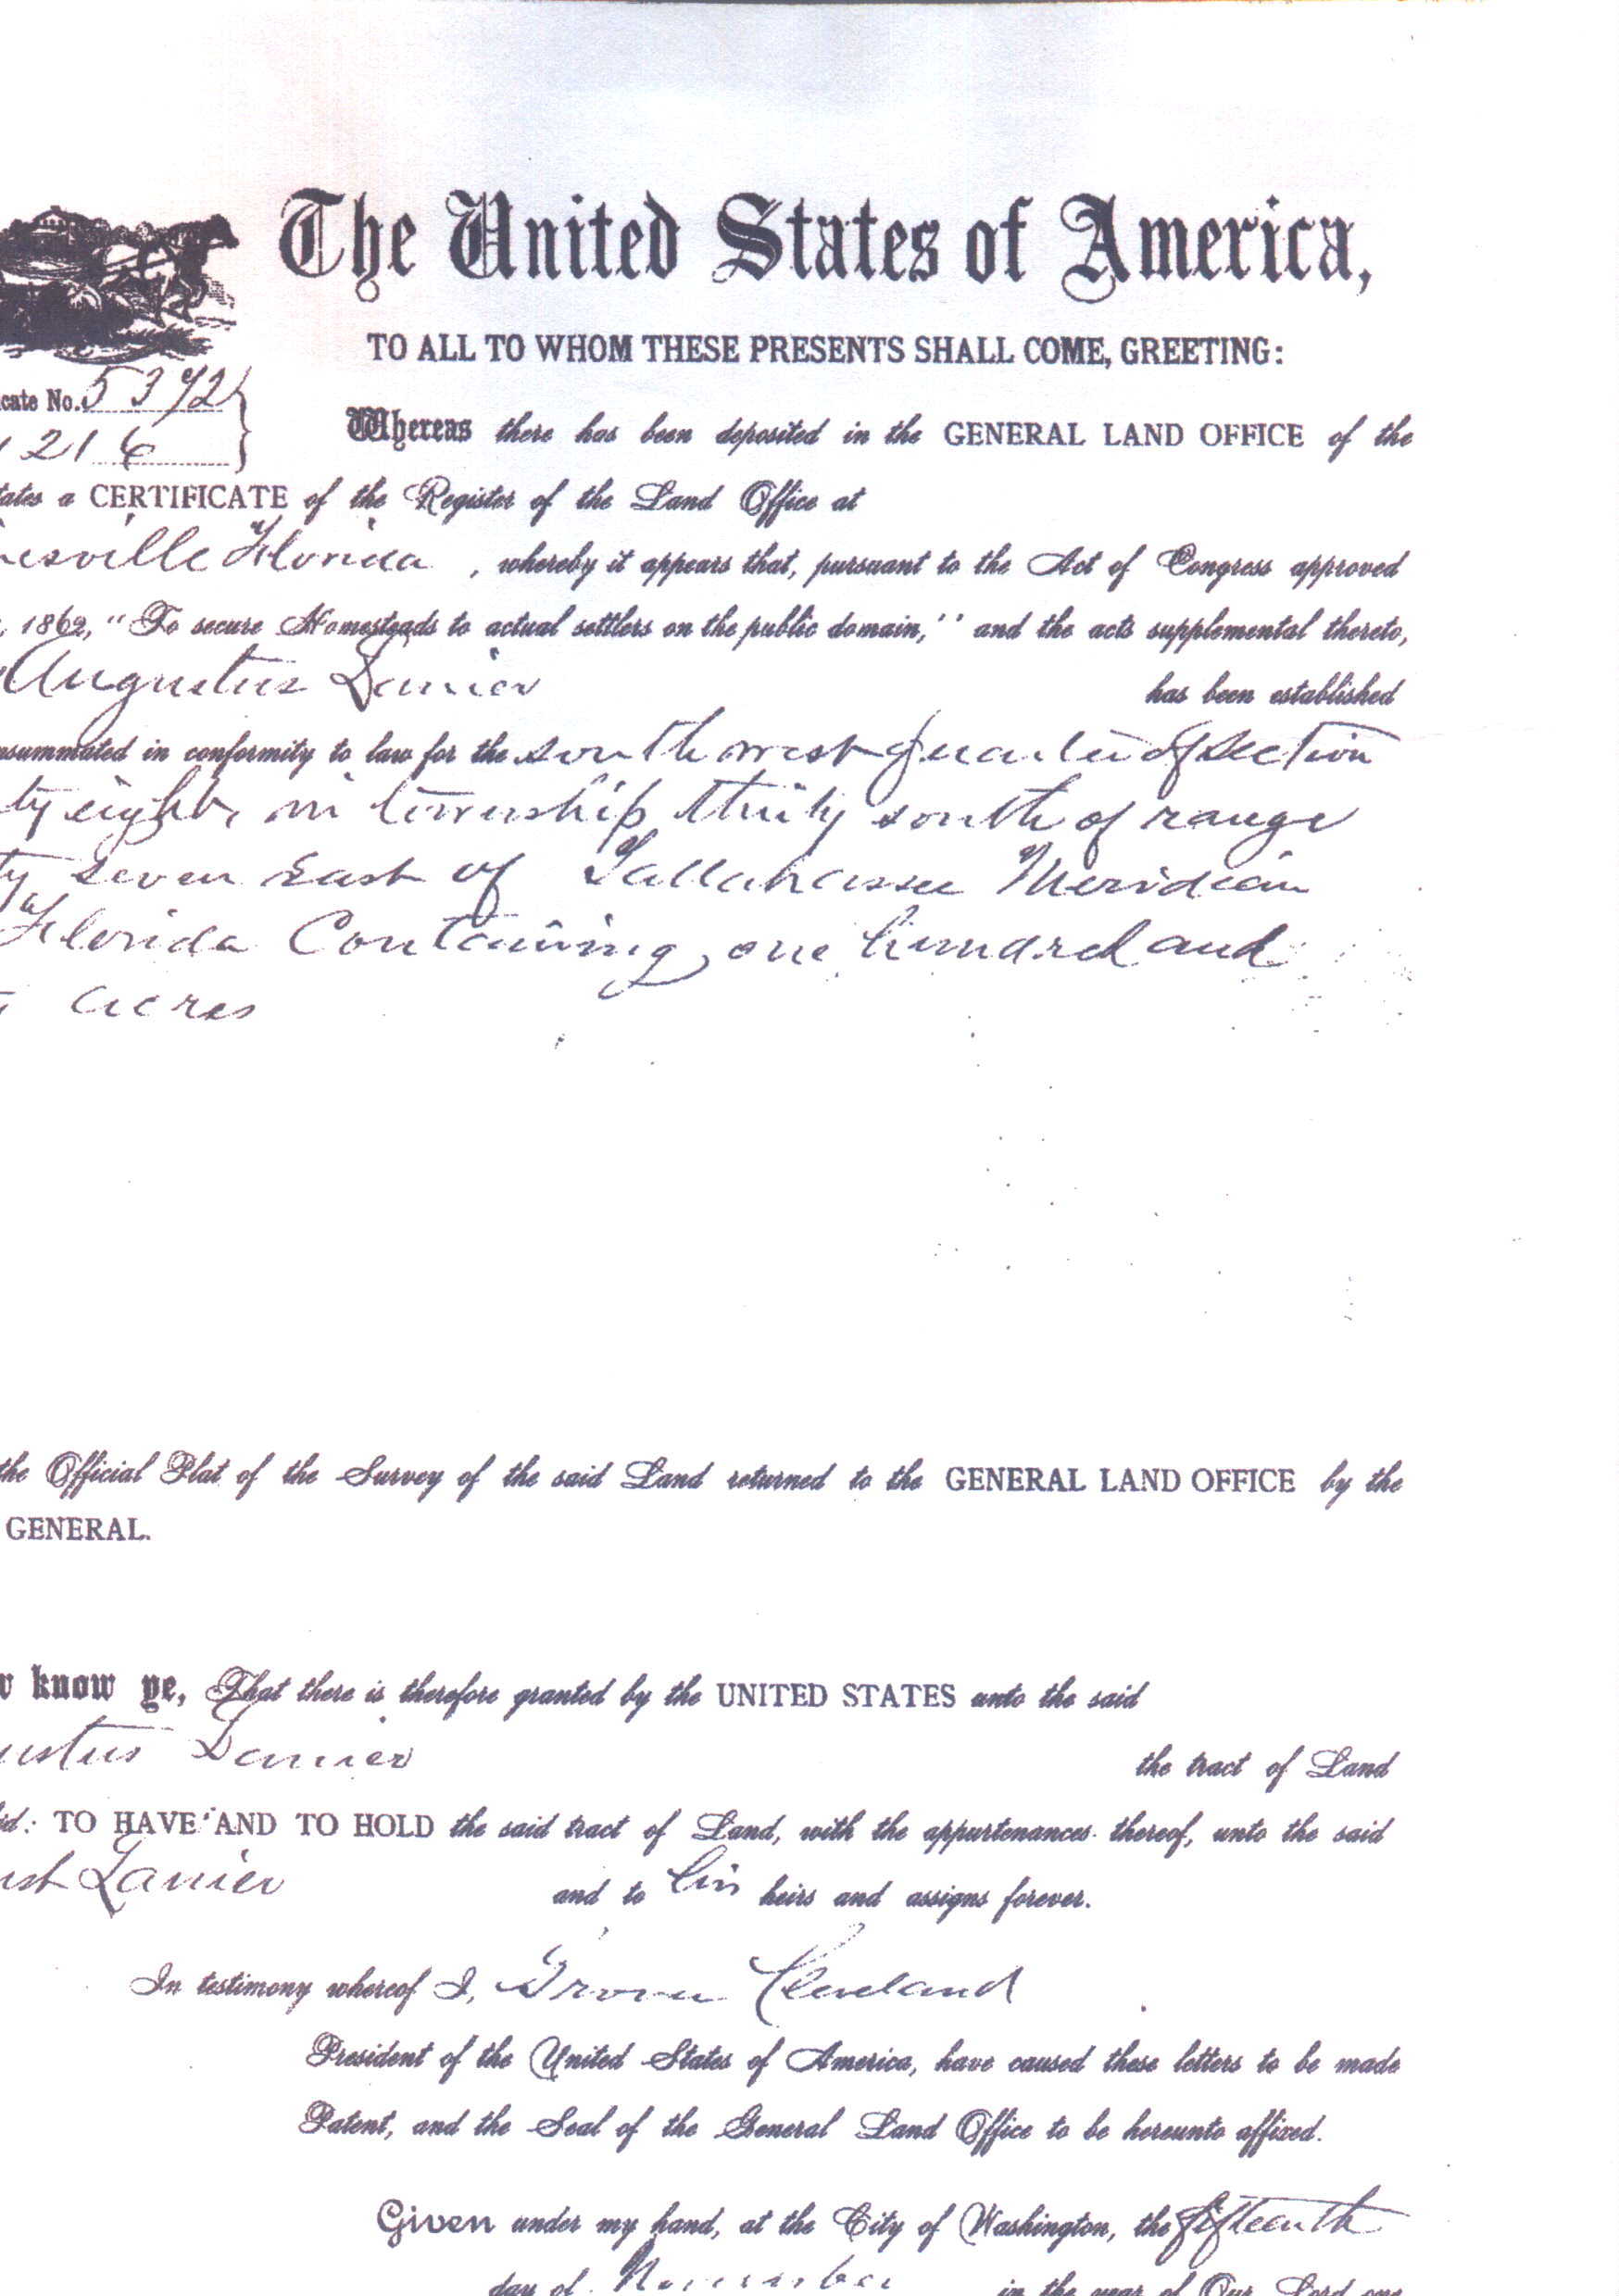 The United States of America,
TO ALL TO WHOM THESE PRESENTS SHALL COME, GREETING:
cate No. 5372
1216
Whereas there has been deposited in the GENERAL LAND OFFICE of the
tates a CERTIFICATE of the Register of the Land Office at
nesville Florida , whereby it appears that, pursuant to the Act of Congress approved
, 1862, “To secure Homesteads to actual settlers on the public domain,’’ and the acts supplemental thereto,
Augustus Lanier has been established
nsummated in conformity to law for the south west quarter of section
ty eight, in township thirty south of range
ty seven East of Tallahassee Meridian
Florida Containing one hundred and
acres
the Official Plat of the Survey of the said Land returned to the GENERAL LAND OFFICE by the
GENERAL.
w know ye, That there is therefore granted by the UNITED STATES unto the said
ustus Lanier the tract of Land
id: TO HAVE AND TO HOLD the said tract of Land, with the appurtenances thereof, unto the said
ust Lanier and to his heirs and assigns forever.
In testimony whereof I, Grover Cleveland
President of the United States of America, have caused these letters to be made
Patent, and the Seal of the General Land Office to be hereunto affixed.
Given under my hand, at the City of Washington, the fifteenth
day of November in the year of Our Lord one